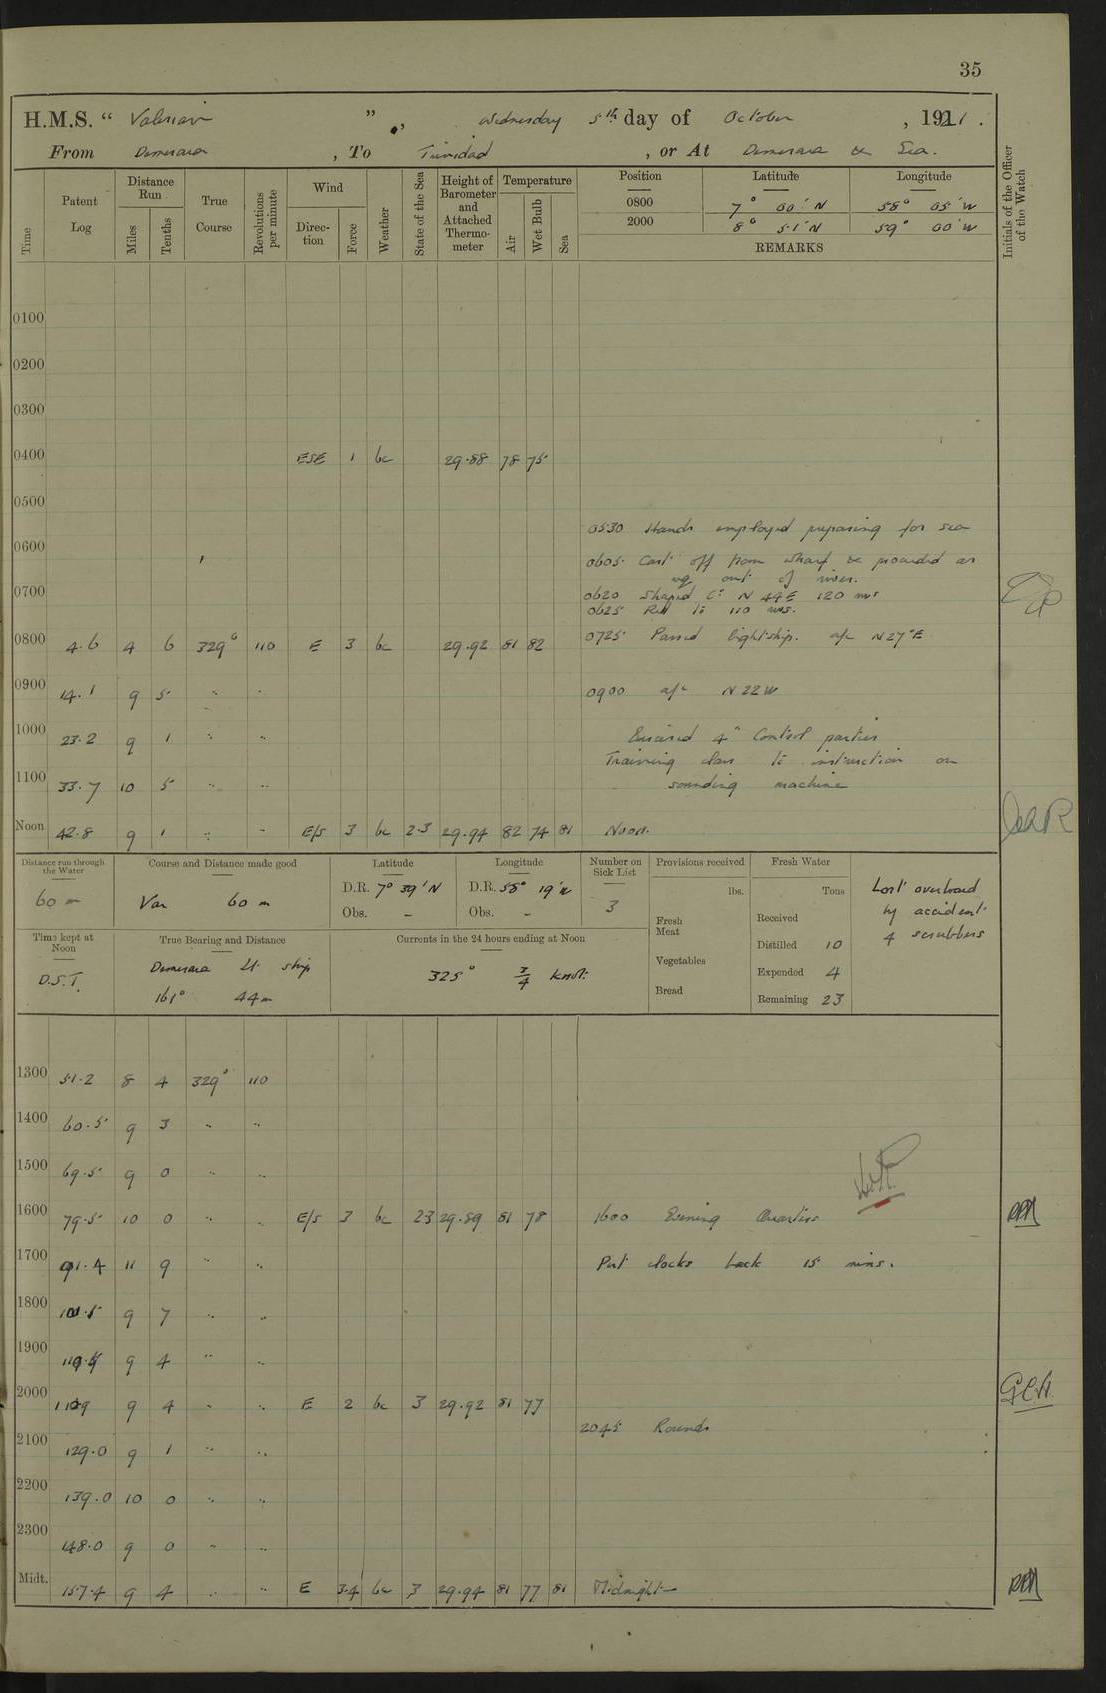 35
H.M.S. “ Valerian ” , Wednesday 5th day of October , 1921 .
From Demerara , To Trinidad , or At Demerara & Sea.
Time Patent Log Distance Run Miles Tenths True Course Revolutions per minute Wind Direction Force Weather State of the Sea Height of Barometer and Attached Thermometer Temperature Air Wet Bulb Sea Position Latitude Longitude Initials of the Officer of the Watch
0800 7° 00' N 58° 05' W
2000 8° 51' N 59° 00' W
REMARKS
0100
0200
0300
0400 ESE 1 bc 29.88 78 75
0500
0530 Hands employed preparing for sea
0600
0605 Cast off from wharf & proceeded as
req out of river.
0700
0620 Shaped Co N 44 E 120 revs
0625 Red to 110 revs.
0725 Passed lightship. a/c N 27° E
0800 4.6 4 6 329° 110 E 3 bc 29.92 81 82
0900 14.1 9 5 " " 0900 a/c N 22 W
1000 23.2 9 1 " " Exercised 4" Control parties
Training class to instruction on
1100 33.7 10 5 " " sounding machine
Noon 42.8 9 1 " " E/S 3 bc 2.3 29.94 82 74 81 Noon.
Distance run through the Water Course and Distance made good Latitude Longitude Number on Sick List Provisions received Fresh Water
60 m Var 60 m D.R. 7° 39' N D.R. 58° 19' W 3
Obs. – Obs. –
lbs. Tons
Fresh Meat
Vegetables
Bread
Received
Distilled 10
Expended 4
Remaining 23
Lost overboard
by accident
4 scrubbers
Time kept at Noon True Bearing and Distance Currents in the 24 hours ending at Noon
D.S.T. Demerara Lt ship 325° 3/4 knot.
161° 44 m
1300 51.2 8 4 329° 110
1400 60.5 9 3 " "
1500 69.5 9 0 " "
1600 79.5 10 0 " " E/S 3 bc 23 29.89 81 78 1600 Evening Quarters
1700 91.4 11 9 " " Put clocks back 15 mins.
1800 9 7 " "
1900 9 4 " "
2000 9 4 " " E 2 bc 3 29.92 81 77
2045 Rounds
2100 129.0 9 1 " "
2200 139.0 10 0 " "
2300 148.0 9 0 " "
Midt. 157.4 9 4 " " E 3.4 bc 3 29.94 81 77 81 Midnight